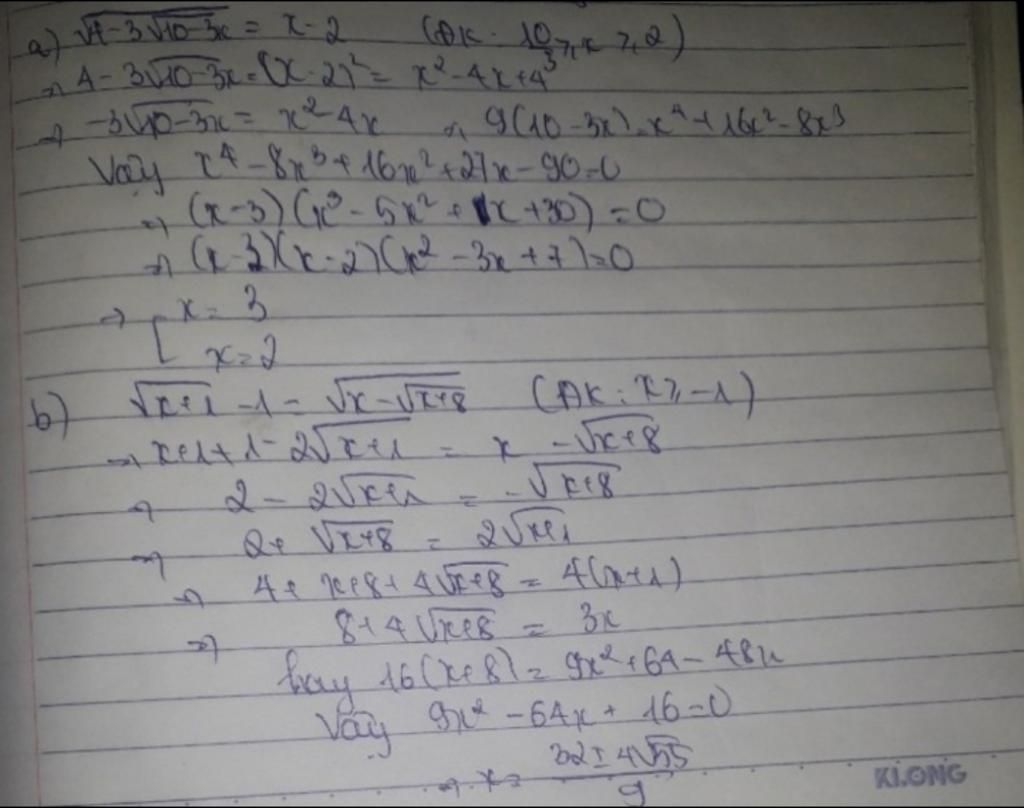 a) √4-3√10-3x = x-2 (ĐK: 10/3 ≥ x ≥ 2)
→ 4-3√10-3x = (x-2)² = x²-4x+4
→ -3√10-3x = x²-4x → 9(10-3x) = x⁴+16x²-8x³
Vậy x⁴-8x³+16x²+27x-90=0
→ (x-3)(x³-5x²+1x+30)=0
→ (x-3)(x-2)(x²-3x+7)=0
→ [ x=3
x=2
b) √x+1 -1 = √x-√x+8 (ĐK: x ≥ -1)
→ x+1+1-2√x+1 = x -√x+8
→ 2-2√x+1 = -√x+8
→ 2+ √x+8 = 2√x+1
→ 4+ x+8+4√x+8 = 4(x+1)
→ 8+4√x+8 = 3x
hay 16(x+8) = 9x²+64-48x
Vậy 9x²-64x+16=0
→ x = 32±4√55/9
KLONG